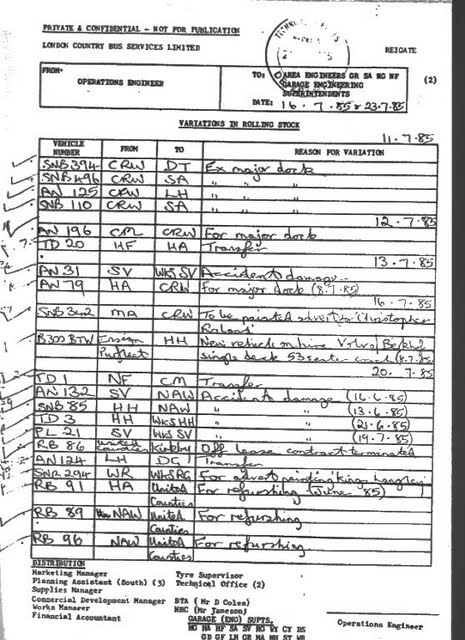 PRIVATE & CONFIDENTIAL - NOT FOR PUBLICATION
LONDON COUNTRY BUS SERVICES LIMITED
REIGATE
FROM:
OPERATIONS ENGINEER
TO: AREA ENGINEERS GR SA RG NF
GARAGE ENGINEERING
SUPERINTENDENTS
(2)
DATE: 16.7.85 & 23.7.85
VARIATIONS IN ROLLING STOCK
11.7.85
VEHICLE NUMBER FROM TO REASON FOR VARIATION
SNB 394 CRW DT Ex major dock
SNB 496 CRW SA " " "
AN 125 CRW LH " " "
SNB 110 CRW SA " " "
12.7.85
AN 196 CM CRW For major dock
TD 20 HF HA Transfer
13.7.85
AN 31 SV WKS SV Accident damage
AN 79 HA CRW For major dock (8.7.85)
16.7.85
SNB 342 MA CRW To be painted advert for Christopher
Roland
B300 BTW Ensign HH New vehicle on hire Volvo
Purfleet single deck 53 seater coach (8.7.85)
20.7.85
TD 1 NF CM Transfer
AN 132 SV NAW Accident damage (16.6.85)
SNB 85 HH NAW " " (13.6.85)
TD 3 HH WKS HH " " (21.6.85)
PL 21 SV WKS SV " " (19.7.85)
RB 86 United Counties Kirkby Off lease contract terminated
AN 124 LH DG Transfer
SNB 294 WR WKS RG For advert painting 'Kings Langley'
RB 91 HA United For refurbishing (June 85)
Counties
RB 89 NAW United For refurbishing
Counties
RB 96 NAW United For refurbishing
Counties
DISTRIBUTION
Marketing Manager Tyre Supervisor
Planning Assistant (South) (3) Technical Office (2)
Supplies Manager
Commercial Development Manager BTA (Mr D Coles)
Works Manager NBC (Mr Jameson)
Financial Accountant GARAGE (ENG) SUPTS.
Operations Engineer
HG HA HF SA SV RG WY CY DS
GD GF LH GR MA HH ST WR